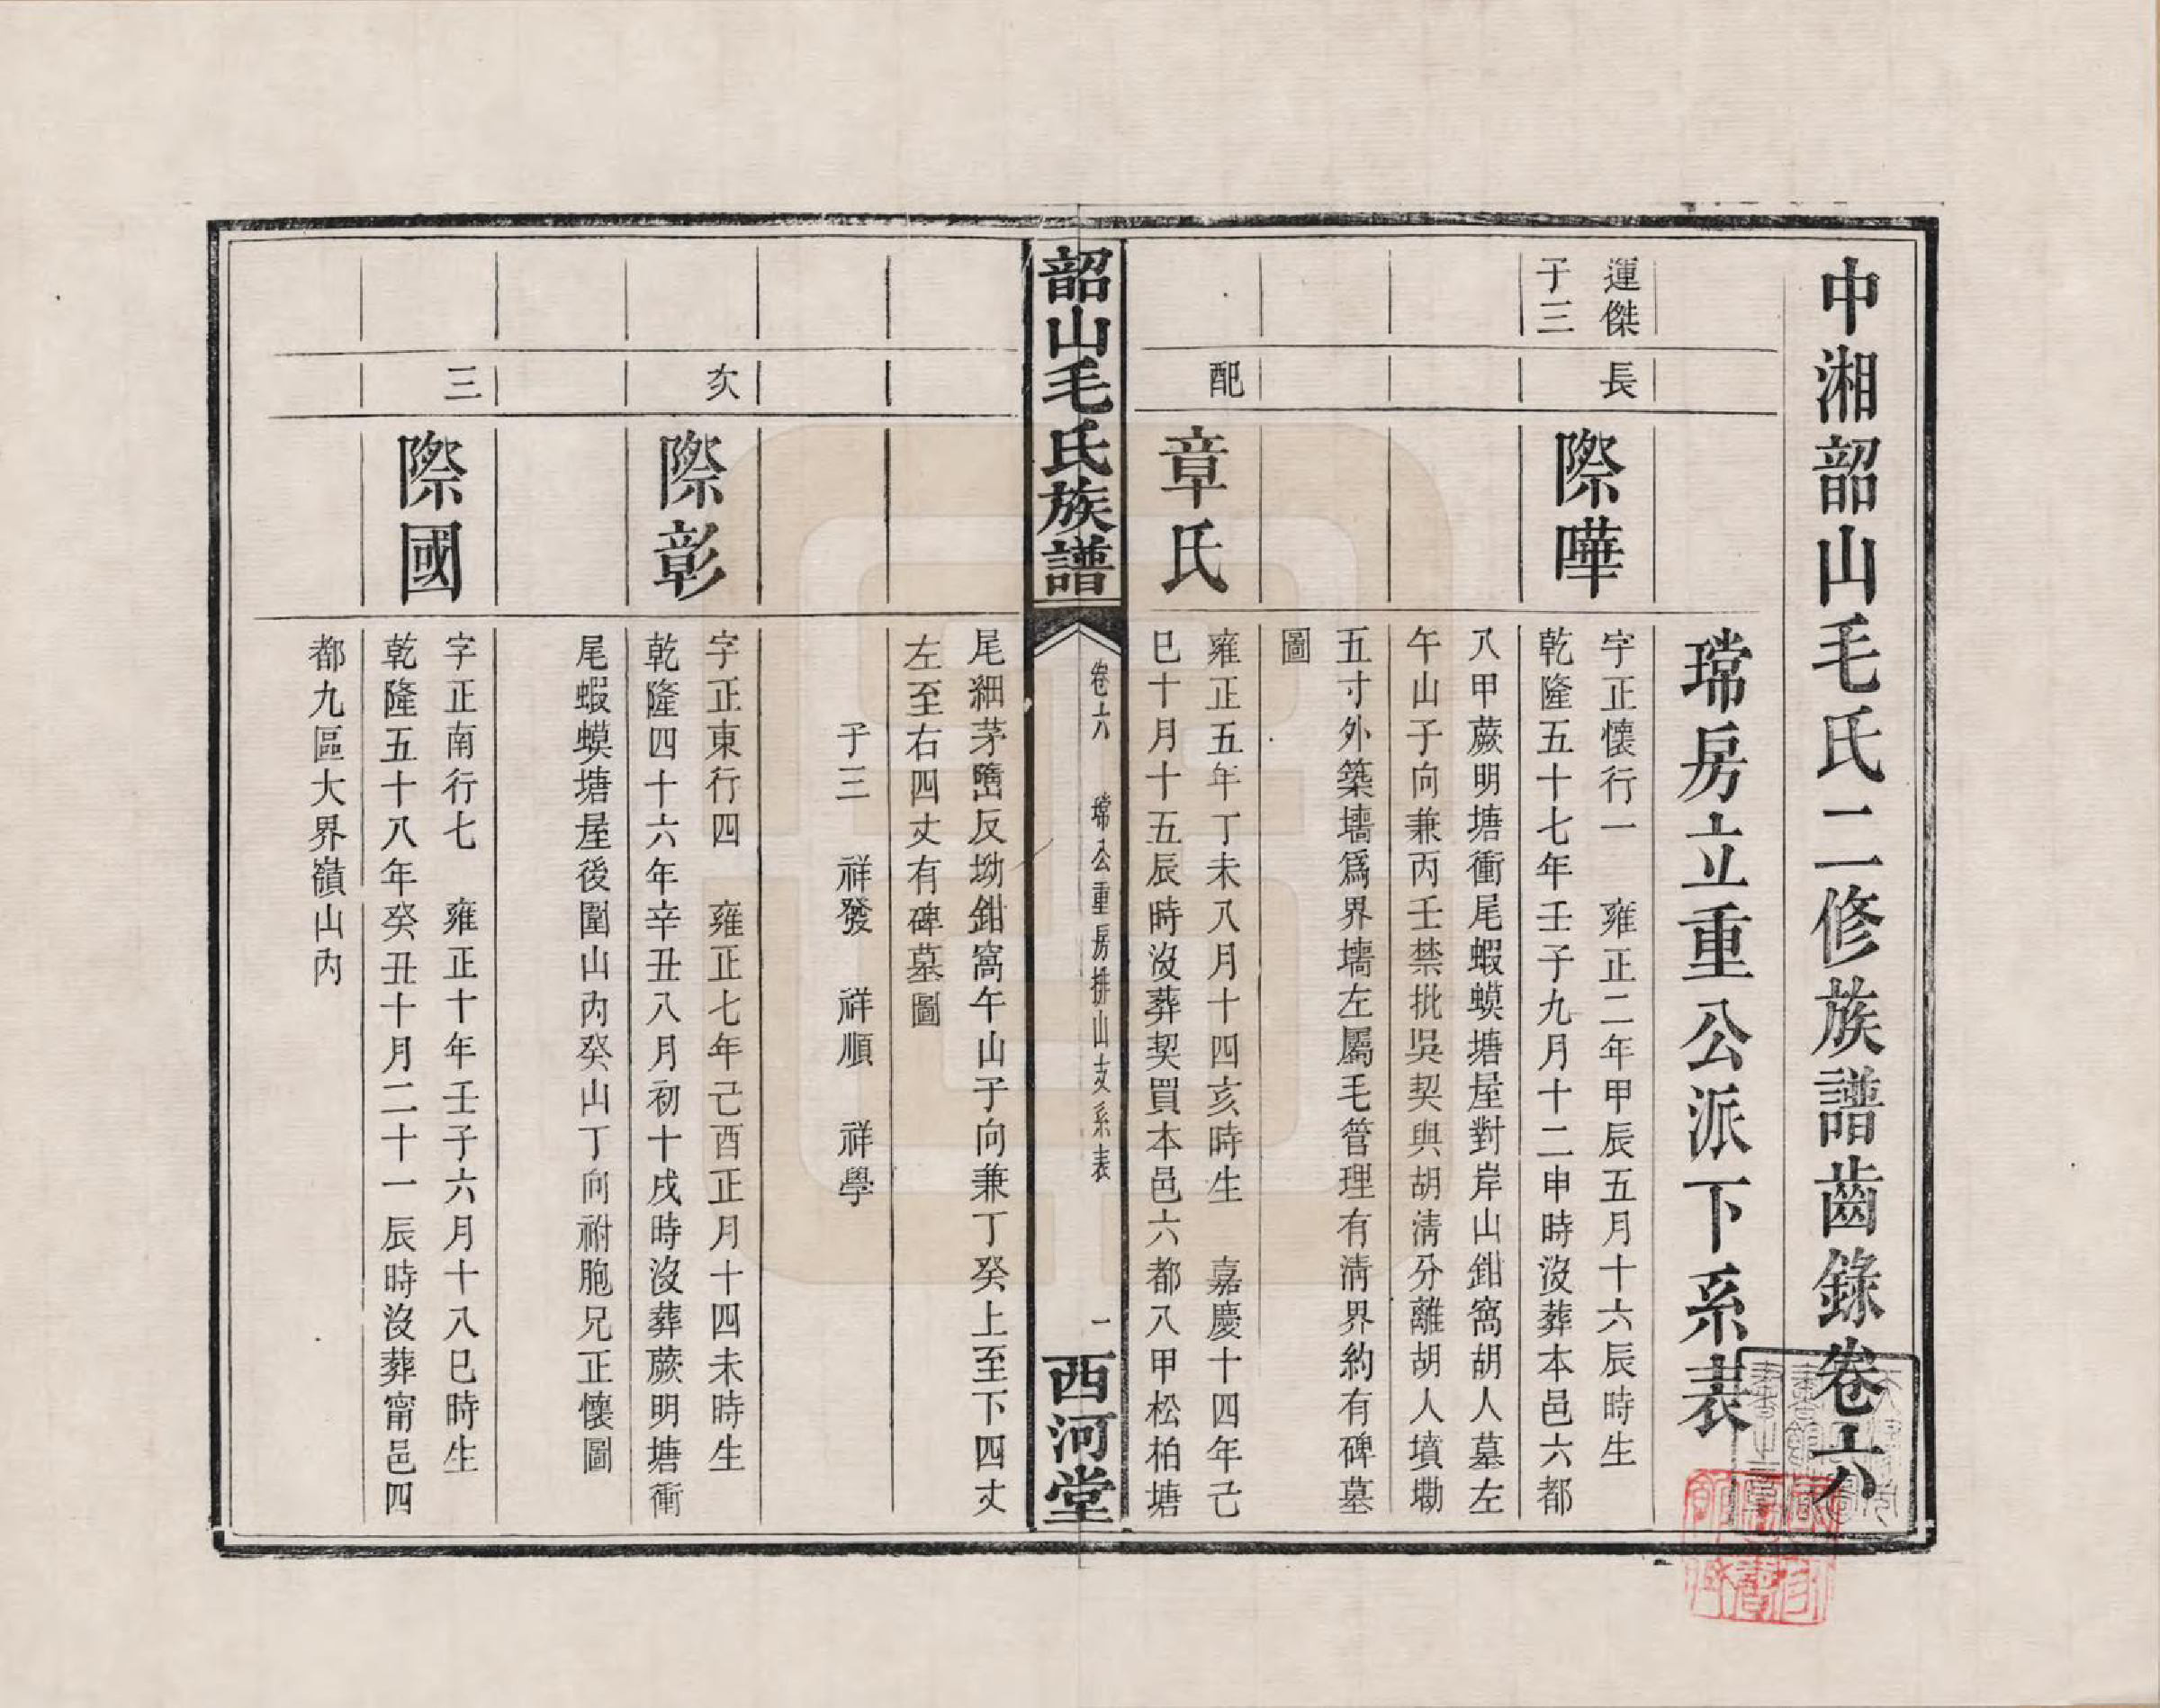 中湘韶山毛氏二修族譜齒錄卷六
㻏房立重公派下系表
運傑
子三
長
際嘩
字正懷行一　雍正二年甲辰五月十六辰時生
乾隆五十七年壬子九月十二申時沒葬本邑六都
八甲蕨明塘衝尾蝦蟆塘屋對岸山鉗窩胡人墓左
午山子向兼丙壬禁批吳契與胡清分離胡人墳塸
五寸外築墻爲界墻左屬毛管理有清界約有碑墓
圖
配
章氏
雍正五年丁未八月十四亥時生　嘉慶十四年己
巳十月十五辰時沒葬契買本邑六都八甲松柏塘
韶山毛氏族譜
卷六　公重房排山支系表
一
西河堂
尾細茅反坳鉗窩午山子向兼丁癸上至下四丈
左至右四丈有碑墓圖
子三　祥發　祥順　祥學
次
際彰
字正東行四　雍正七年己酉正月十四未時生
乾隆四十六年辛丑八月初十戌時沒葬蕨明塘衝
尾蝦蟆塘屋後圍山內癸山丁向祔胞兄正懷圖
三
際國
字正南行七　雍正十年壬子六月十八巳時生
乾隆五十八年癸丑十月二十一辰時沒葬甯邑四
都九區大界嶺山內